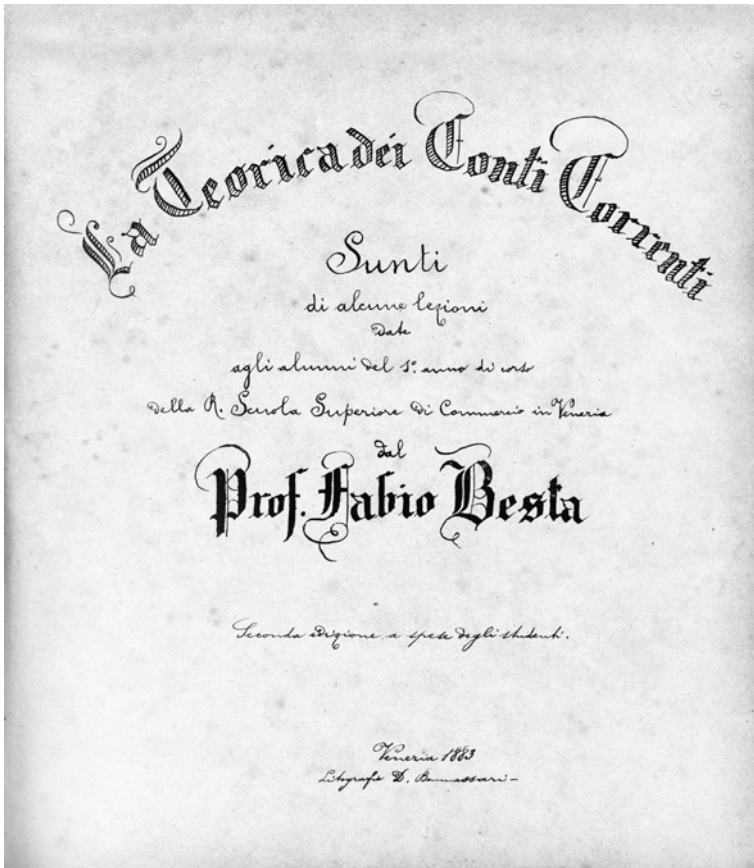 La Teorica dei Conti Correnti
Sunti
di alcune lezioni
date
agli alunni del 1º anno di corso
della R. Scuola Superiore di Commercio in Venezia
dal
Prof. Fabio Besta
Seconda edizione a spese degli studenti.
Venezia 1883
Litografia D. Bonnassari